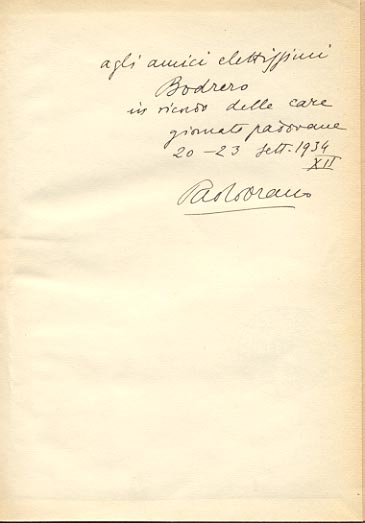 agli amici elettissimi
Bodrero
in ricordo delle care
giornate padovane
20-23 Sett. 1934
XII
Paolo Orano